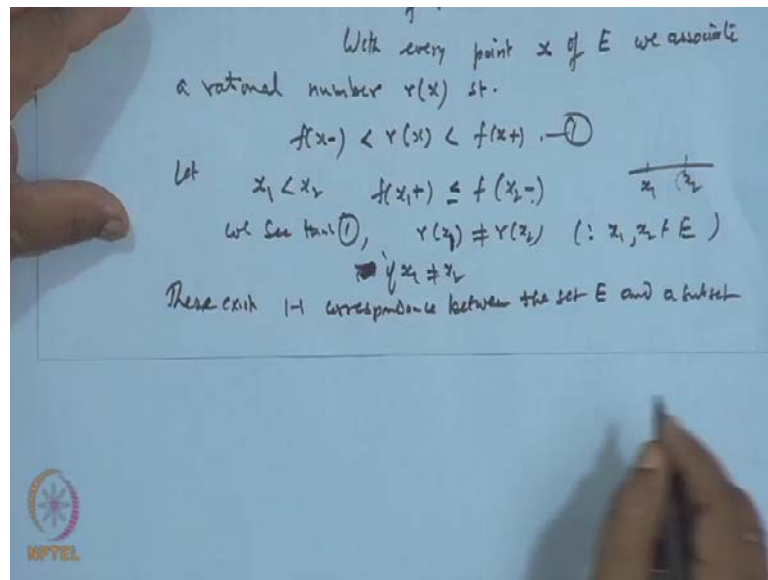 With every point x of E we associate
a rational number r(x) st.
f(x-) < r(x) < f(x+) . —①
Let x₁ < x₂ f(x₁+) ≤ f(x₂-)
x₁ x₂
we see from ①, r(x₁) ≠ r(x₂) (∵ x₁, x₂ ∈ E)
if x₁ ≠ x₂
There exist 1-1 correspondence between the set E and a subset
NPTEL